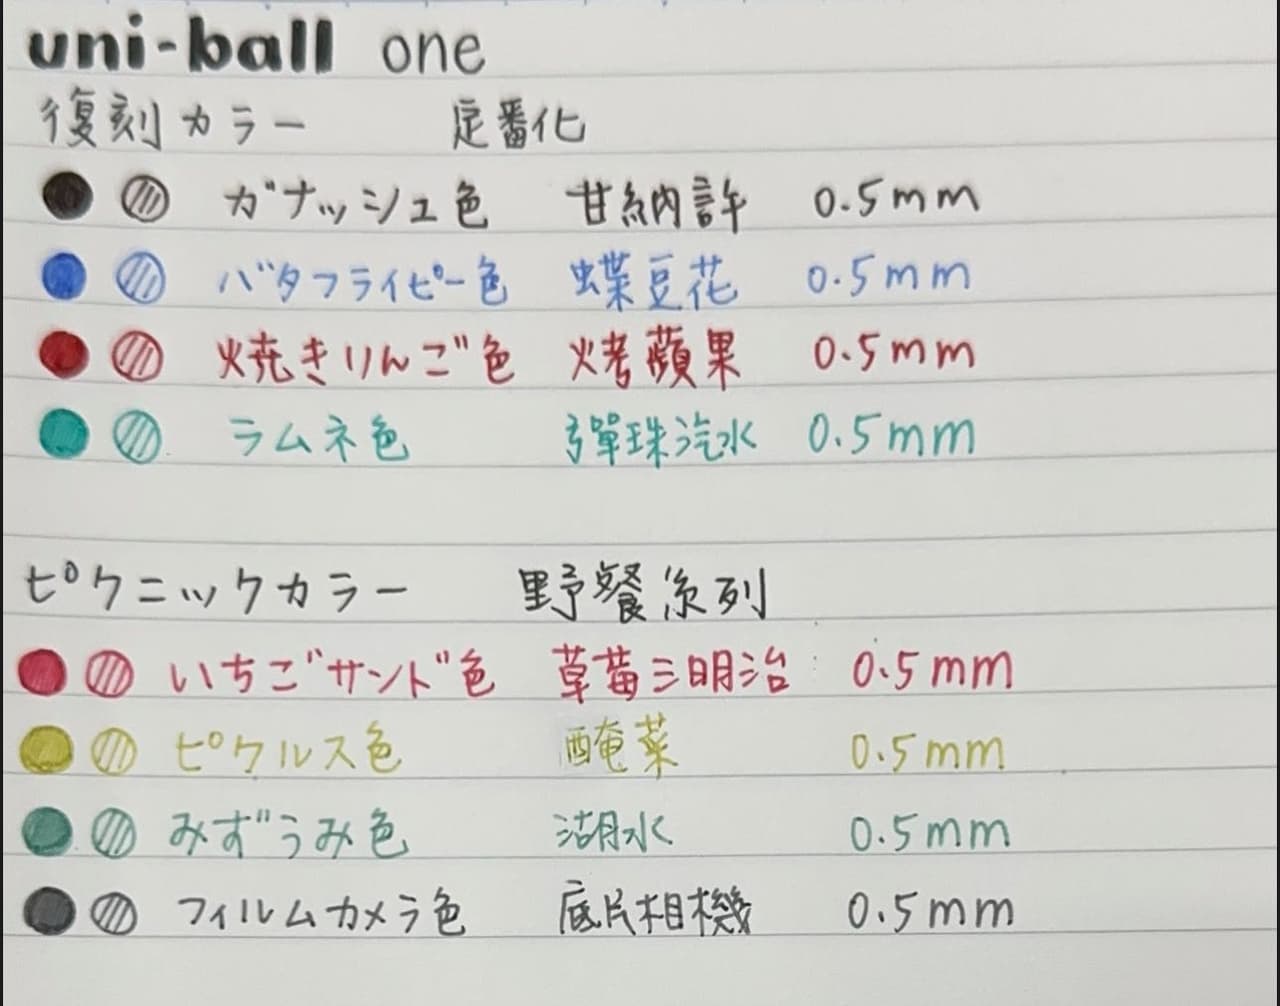 uni-ball one
復刻カラー 定番化
ガナッシュ色 甘納許 0.5mm
バタフライピー色 蝶豆花 0.5mm
焼きりんご色 烤蘋果 0.5mm
ラムネ色 彈珠汽水 0.5mm
ピクニックカラー 野餐系列
いちごサンド色 草莓三明治 0.5mm
ピクルス色 醃菜 0.5mm
みずうみ色 湖水 0.5mm
フィルムカメラ色 底片相機 0.5mm